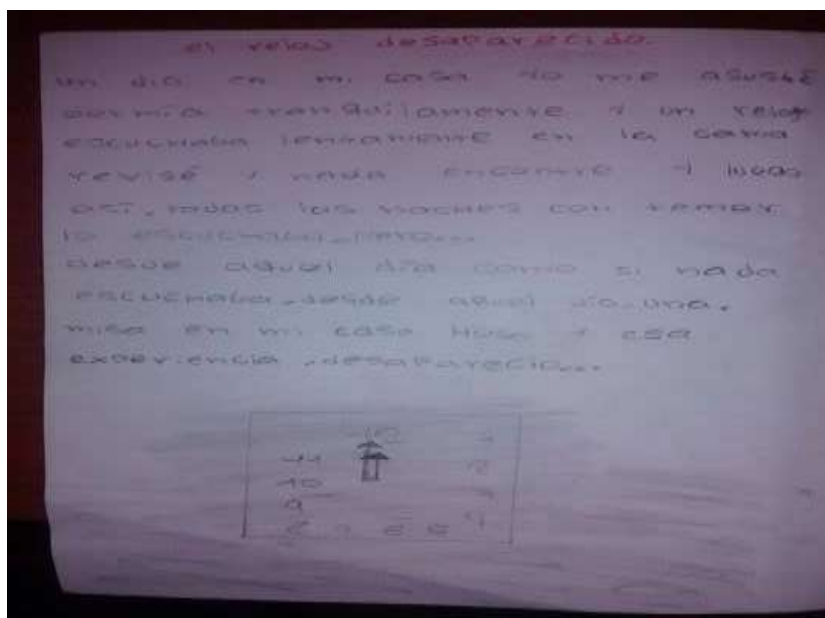 el reloj desaparecido.
un dia en mi casa yo me asusté
dormía tranquilamente y un reloj
escuchaba lentamente en la cama
revisé y nada encontre y luego
así, todas las noches con temor
lo escuchaba, pero...
desde aquel día como si nada
escuchaba, desde aquel dia, una,
misa en mi casa Huso y esa
experiencia, desaparecio...
12 1
11 2
10 3
9 4
8 7 6 5